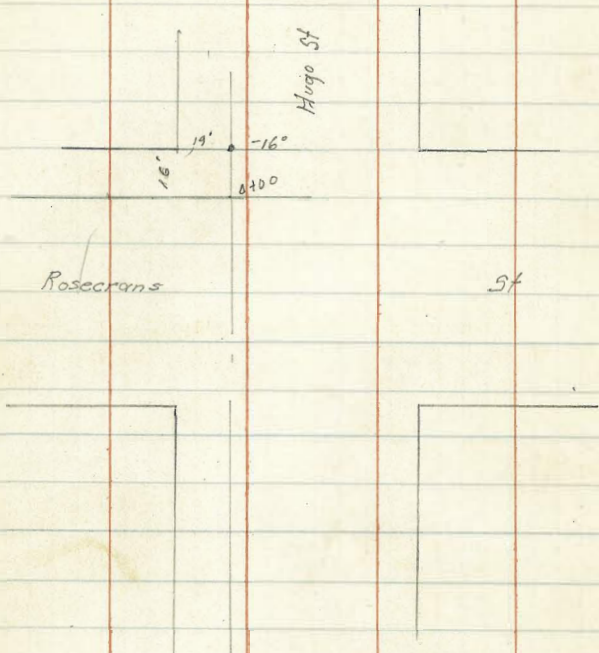 Hugo St
19' -16°
16'
0+0°
Rosecrans St